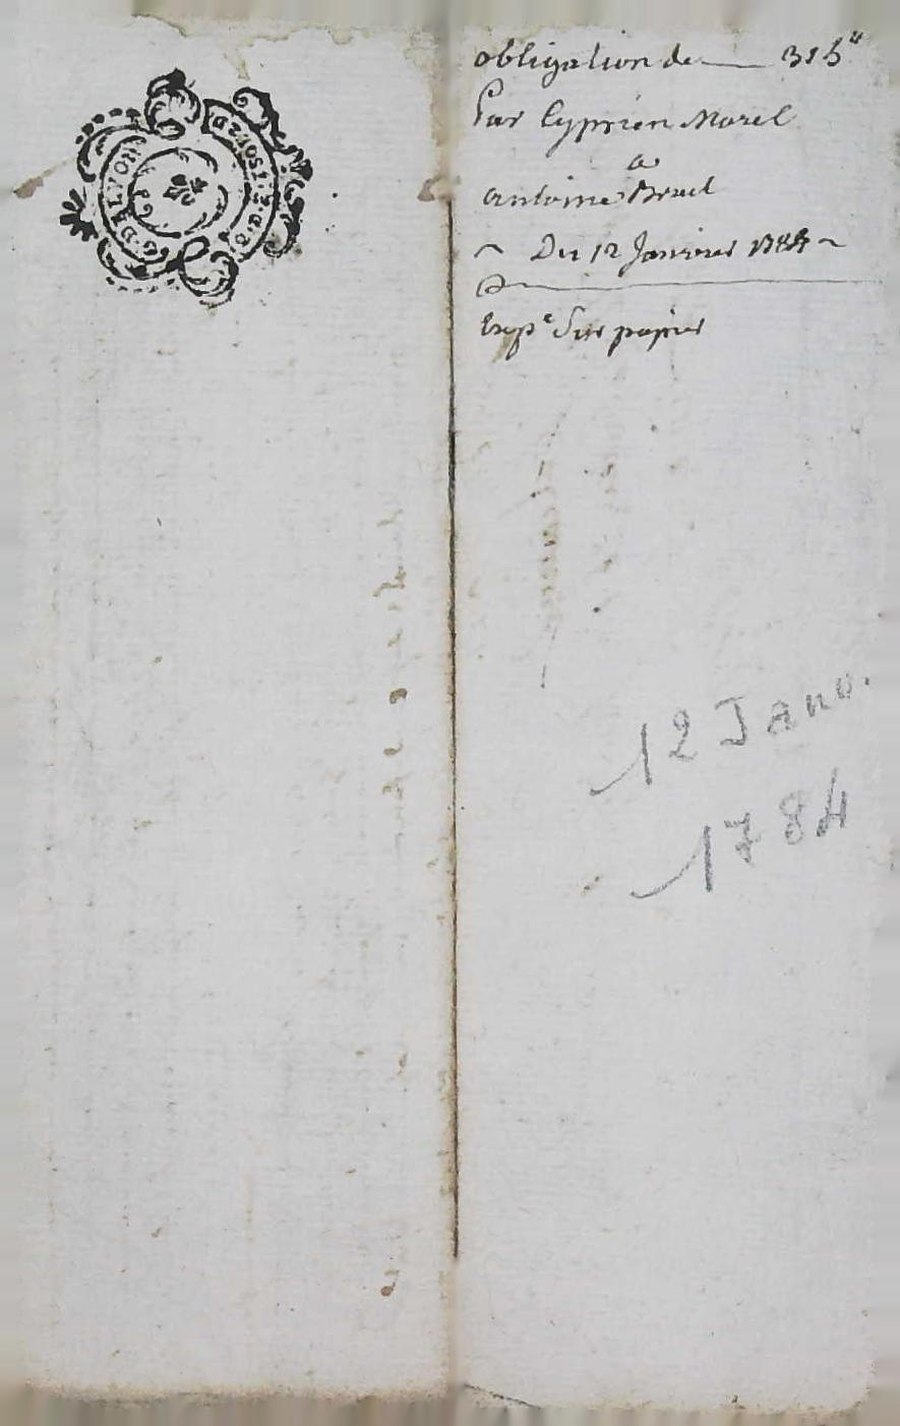 G. DE LYON
2. SOLS 2. D.
obligation de — 315#
Par Cyprien Morel
a
antoine Bruel
~ Du 12 Janvier 1784 ~
Exp.e Sur papier
12 Janv.
1784